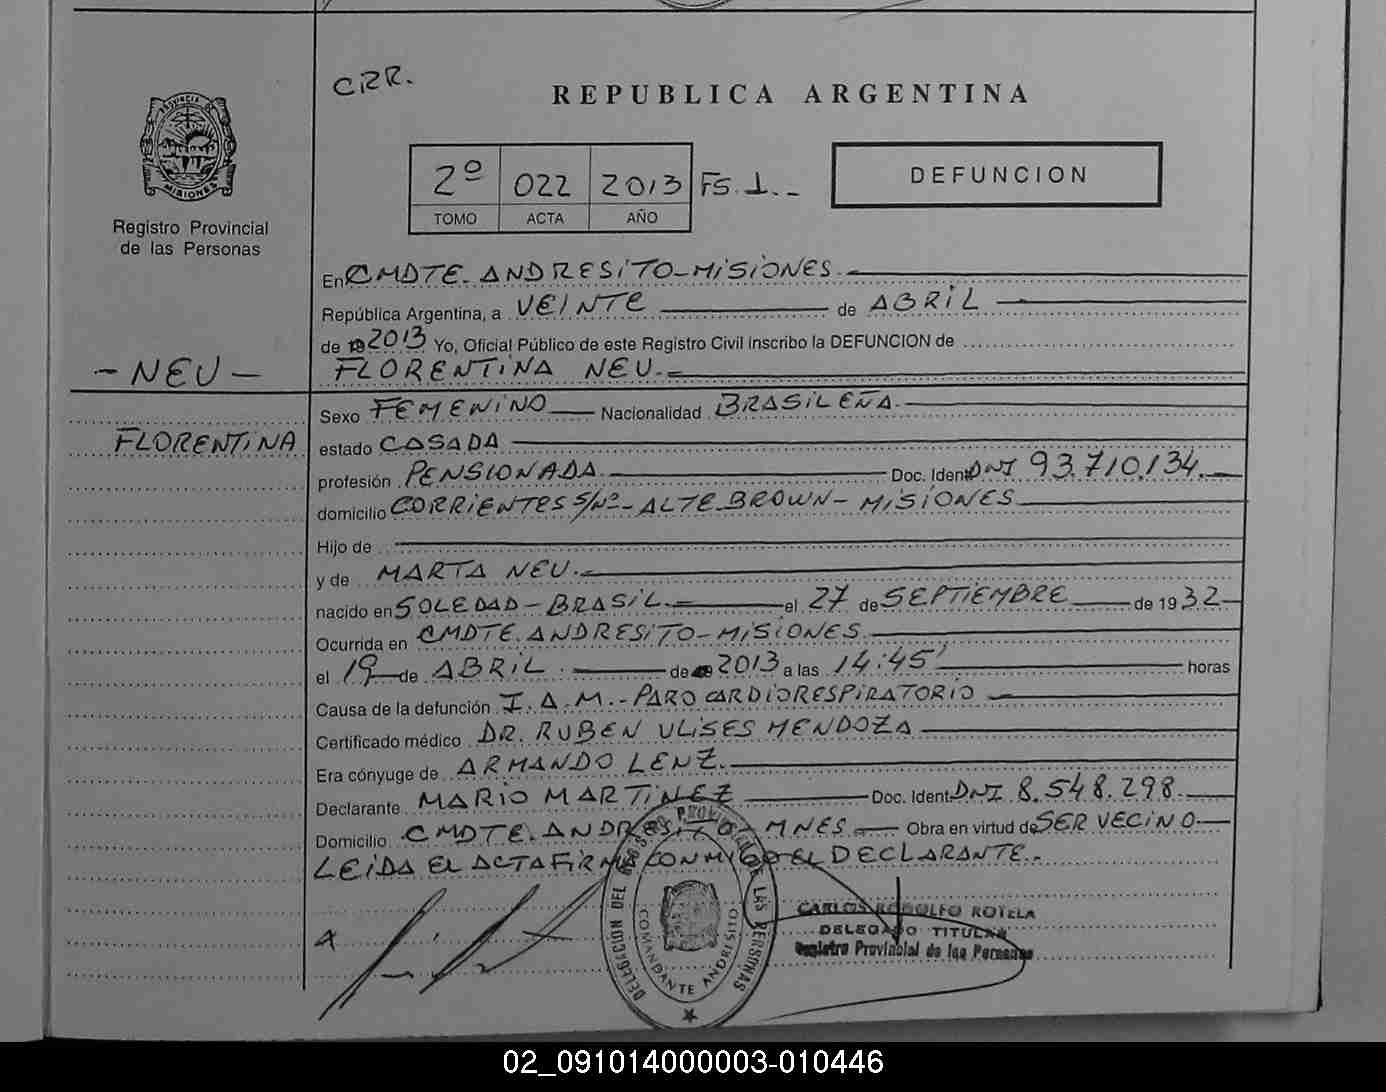 CRR.
REPUBLICA ARGENTINA
PROVINCIA DE
MISIONES
Registro Provincial
de las Personas
2º 022 2013 FS. 1.--
TOMO ACTA AÑO
DEFUNCION
En CMDTE. ANDRESITO-MISIONES.
República Argentina, a VEINTE de ABRIL
de 19 2013 Yo, Oficial Público de este Registro Civil inscribo la DEFUNCION de
- NEU - FLORENTINA NEU.=
Sexo FEMENINO Nacionalidad BRASILEÑA.
FLORENTINA estado CASADA
profesión PENSIONADA. Doc. Ident. DNI 93.710.134.
domicilio CORRIENTES S/Nº-ALTE.BROWN- MISIONES
Hijo de
y de MARTA NEU.
nacido en SOLEDAD-BRASIL. el 27 de SEPTIEMBRE de 1932
Ocurrida en CMDTE. ANDRESITO-MISIONES.
el 19 de ABRIL. de 2013 a las 14:45' horas
Causa de la defunción I.A.M.-PARO CARDIORESPIRATORIO
Certificado médico DR. RUBEN ULISES MENDOZA
Era cónyuge de ARMANDO LENZ.
Declarante MARIO MARTINEZ Doc. Ident. DNI 8.548.298.
Domicilio CMDTE. ANDRESITO, MNES Obra en virtud de SER VECINO
LEIDA EL ACTA FIRMA CONMIGO EL DECLARANTE.
DELEGACION DEL REGISTRO PROVINCIAL DE LAS PERSONAS
COMANDANTE ANDRESITO
CARLOS RODOLFO ROTELA
DELEGADO TITULAR
Registro Provincial de las Personas
02_091014000003-010446